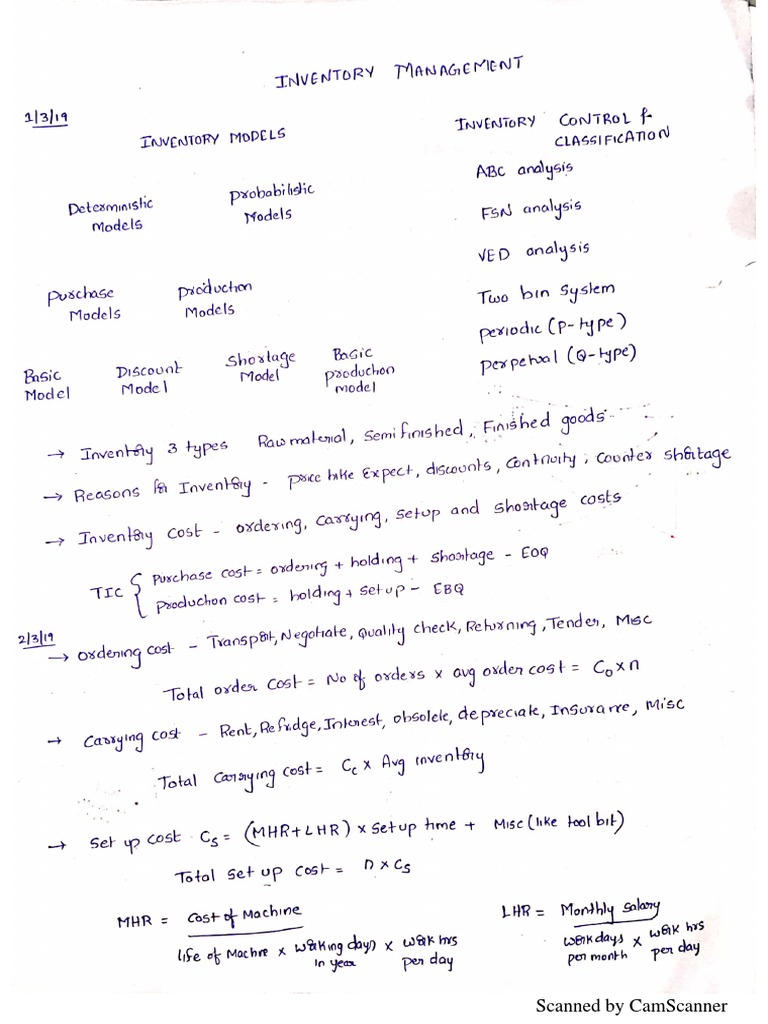 INVENTORY MANAGEMENT
1/3/19
INVENTORY MODELS
Deterministic Models
Probabilistic Models
Purchase Models
Production Models
Basic Model
Discount Model
Shortage Model
Basic production model
INVENTORY CONTROL & CLASSIFICATION
ABC analysis
FSN analysis
VED analysis
Two bin System
Periodic (P-type)
perpetual (Q-type)
→ Inventory 3 types Raw material, Semi finished, Finished goods
→ Reasons for Inventory - price hike Expect, discounts, Continuity, Counter Shortage
→ Inventory cost - ordering, carrying, setup and shortage costs
TIC { purchase cost = ordering + holding + shortage - EOQ
production cost = holding + setup - EBQ
2/3/19
→ ordering cost - Transport, Negotiate, Quality check, Returning, Tender, Misc
Total order cost = No of orders x avg order cost = Co x n
→ Carrying cost - Rent, Refridge, Interest, obsolete, depreciate, Insurance, Misc
Total Carrying cost = Cc x Avg inventory
→ Set up cost Cs = (MHR + LHR) x setup time + Misc (like tool bit)
Total set up cost = n x Cs
MHR = Cost of Machine / life of Machine x working days in year x work hrs per day
LHR = Monthly salary / work days per month x work hrs per day
Scanned by CamScanner